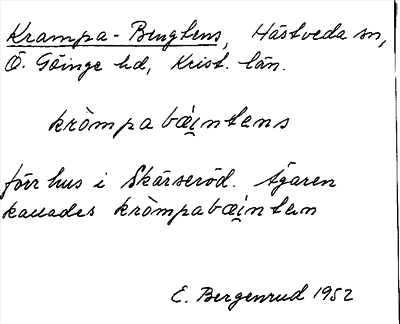 Krampa-Bengtens, Hästveda sn,
Ö. Göinge hd, Krist. län.
kròmpabæ̀i̯ntens
förr hus i Skärseröd. Ägaren
kallades kròmpabæ̀i̯nten
E. Bergenrud 1952